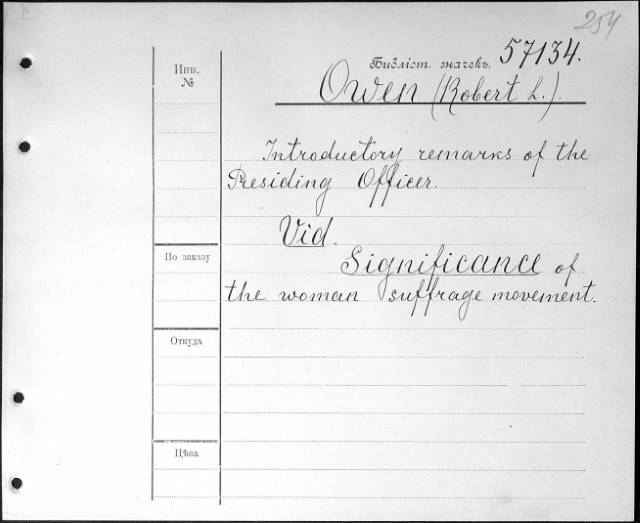 254
Инв.
№
Библіот. значекъ. 57134.
Owen (Robert L.).
Introductory remarks of the
Presiding Officer.
Vid.
Significance of
По заказу
the woman suffrage movement.
Откуда
Цѣна